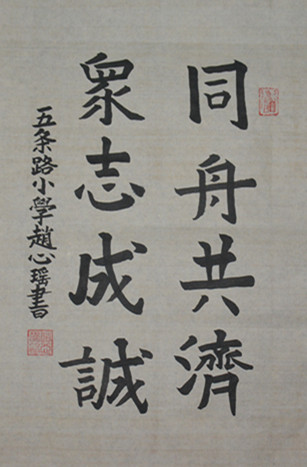 同舟共濟
眾志成誠
五条路小學趙心瑶書